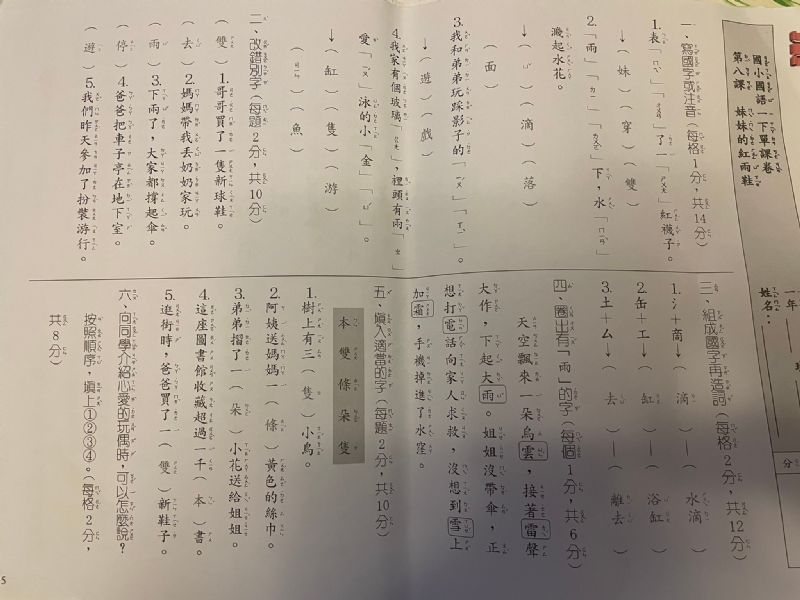 國小國語一下單課卷
第八課 妹妹的紅雨鞋
一年
姓名：
分
一、寫國字或注音（每格1分，共14分）
1. 表「ㄇㄟˋ」「ㄔㄨㄢ」了一「ㄕㄨㄤ」紅襪子。
→（妹）（穿）（雙）
2. 「雨」「ㄉㄧ」「ㄌㄨㄛˋ」下，水「ㄇㄧㄢˋ」
濺起水花。
→（ㄩˇ）（滴）（落）
（面）
3. 我和弟弟玩踩影子的「ㄧㄡˊ」「ㄒㄧˋ」。
→（遊）（戲）
4. 我家有個玻璃「ㄍㄤ」，裡頭有兩「ㄓ」
愛「ㄧㄡˊ」泳的小「金」「ㄩˊ」。
→（缸）（隻）（游）
（ㄐㄧㄣ）（魚）
二、改錯別字（每題2分，共10分）
（雙）1. 哥哥買了一隻新球鞋。
（去）2. 媽媽帶我丟奶奶家玩。
（雨）3. 下兩了，大家都撐起傘。
（停）4. 爸爸把車子亭在地下室。
（遊）5. 我們昨天參加了扮裝游行。
三、組成國字再造詞（每格2分，共12分）
1. 氵＋啇→（滴）—（水滴）
2. 缶＋工→（缸）—（浴缸）
3. 土＋厶→（去）—（離去）
四、圈出有「雨」的字（每個1分，共6分）
天空飄來一朵烏雲，接著雷聲
大作，下起大雨。姐姐沒帶傘，正
想打電話向家人求救，沒想到雪上
加霜，手機掉進了水窪。
五、填入適當的字（每題2分，共10分）
本 雙 條 朵 隻
1. 樹上有三（隻）小鳥。
2. 阿姨送媽媽一（條）黃色的絲巾。
3. 弟弟摺了一（朵）小花送給姐姐。
4. 這座圖書館收藏超過一千（本）書。
5. 逛街時，爸爸買了一（雙）新鞋子。
六、向同學介紹心愛的玩偶時，可以怎麼說？
按照順序，填上①②③④。（每格2分，
共8分）
5